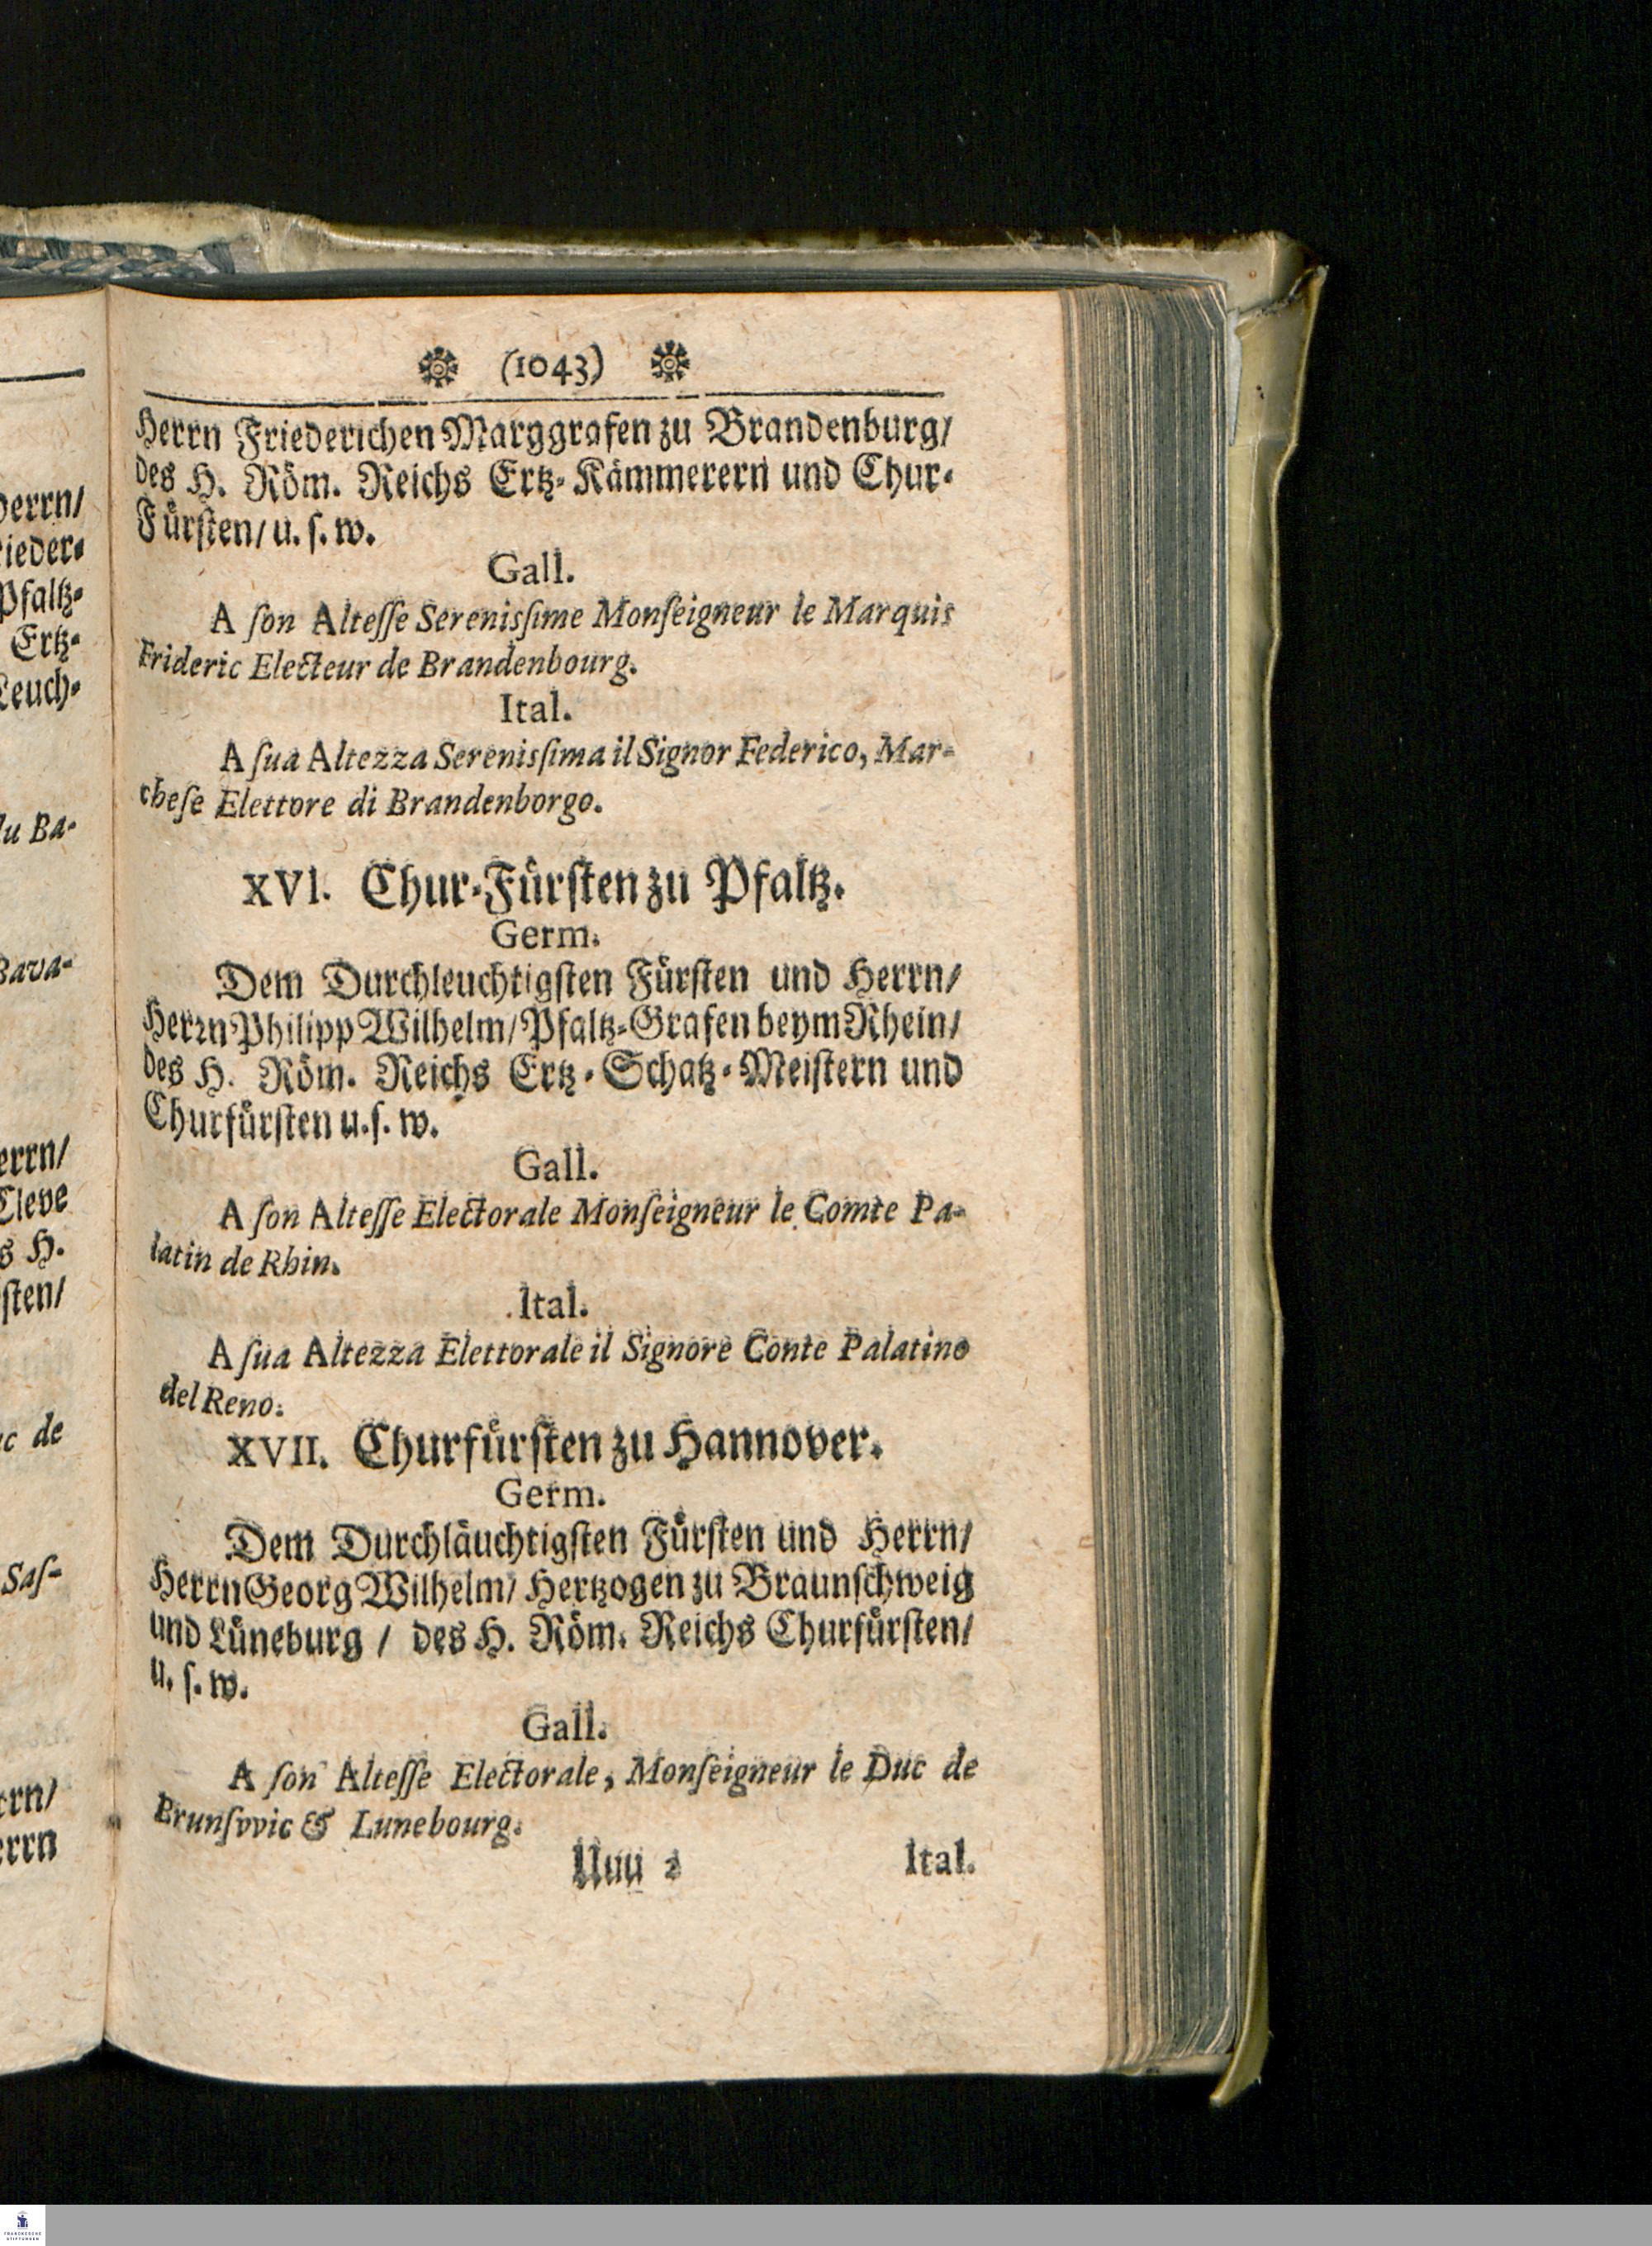 derrn/
rieder-
Pfaltz-
Ertz-
Leuch-
du Ba-
Bava-
errn/
Cleve
s H.
sten/
uc de
Saſ-
errn/
errn
(1043)
Herrn Friederichen Marggrafen zu Brandenburg/
des H. Röm. Reichs Ertz-Kämmerern und Chur-
Fürſten/ u. ſ. w.
Gall.
A ſon Alteſſe Serenisſime Monſeigneur le Marquis
Frideric Electeur de Brandenbourg.
Ital.
A ſua Altezza Serenisſima il Signor Federico, Mar-
cheſe Elettore di Brandenborgo.
XVI. Chur-Fürſten zu Pfaltz.
Germ.
Dem Durchleuchtigſten Fürſten und Herrn/
Herrn Philipp Wilhelm/ Pfaltz-Grafen beym Rhein/
des H. Röm. Reichs Ertz-Schatz-Meiſtern und
Churfürſten u. ſ. w.
Gall.
A ſon Alteſſe Electorale Monſeigneur le Comte Pa-
latin de Rhin.
Ital.
A ſua Altezza Elettorale il Signore Conte Palatino
del Reno.
XVII. Churfürſten zu Hannover.
Germ.
Dem Durchläuchtigſten Fürſten und Herrn/
Herrn Georg Wilhelm/ Hertzogen zu Braunſchweig
und Lüneburg / des H. Röm. Reichs Churfürſten/
u. ſ. w.
Gall.
A ſon Alteſſe Electorale, Monſeigneur le Duc de
Brunſvvic & Lunebourg.
Uuu 2 Ital.
FRANCKESCHE
STIFTUNGEN